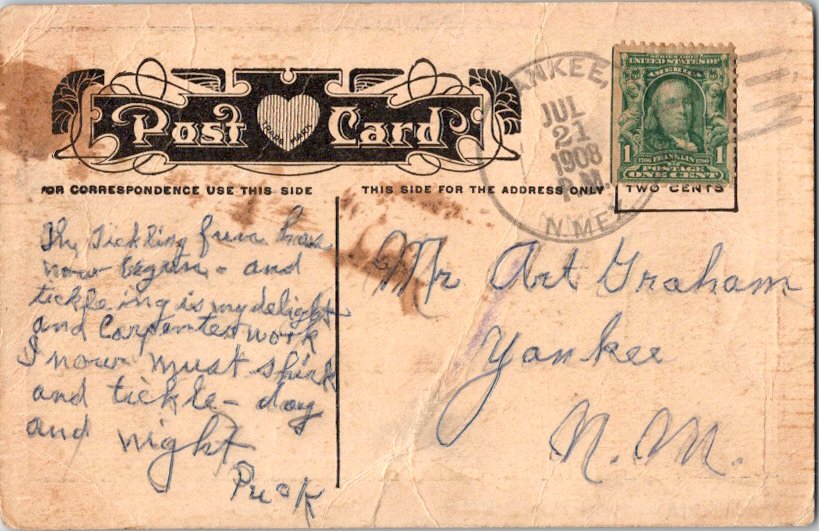 Post Card
TRADE MARK
FOR CORRESPONDENCE USE THIS SIDE
THIS SIDE FOR THE ADDRESS ONLY
TWO CENTS
YANKEE,
JUL
21
1908
P.M.
N. MEX
UNITED STATES OF
AMERICA
1 1706 FRANKLIN 1790 1
POSTAGE
ONE CENT
The Tickling fever has
now begun - and
tickleing is my delight
and Carpenter work
I now must shirk
and tickle - day
and night
Puck
Mr Art Graham
Yankee
N. M.